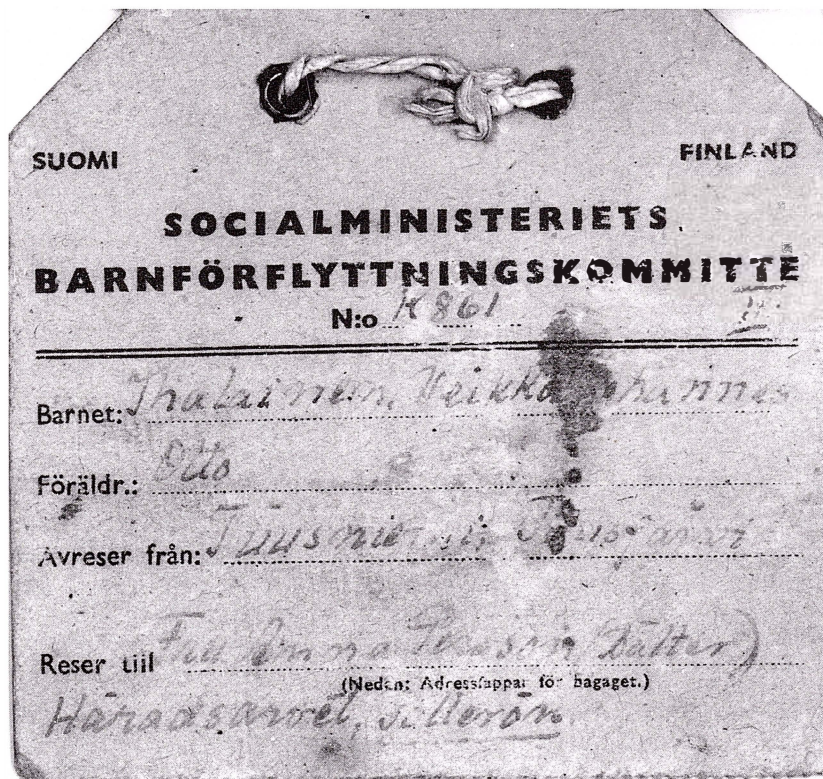 SUOMI FINLAND
SOCIALMINISTERIETS
BARNFÖRFLYTTNINGSKOMMITTE
N:o K861 II
Barnet: Ihalainen, Veikko Johannes
Föräldr.: Otto
Avreser från: Tuusniemi,
Reser till Fru Anna Persson (Dalter)
(Nedan: Adresslappar för bagaget.)
Häradsarvet, Sollerön